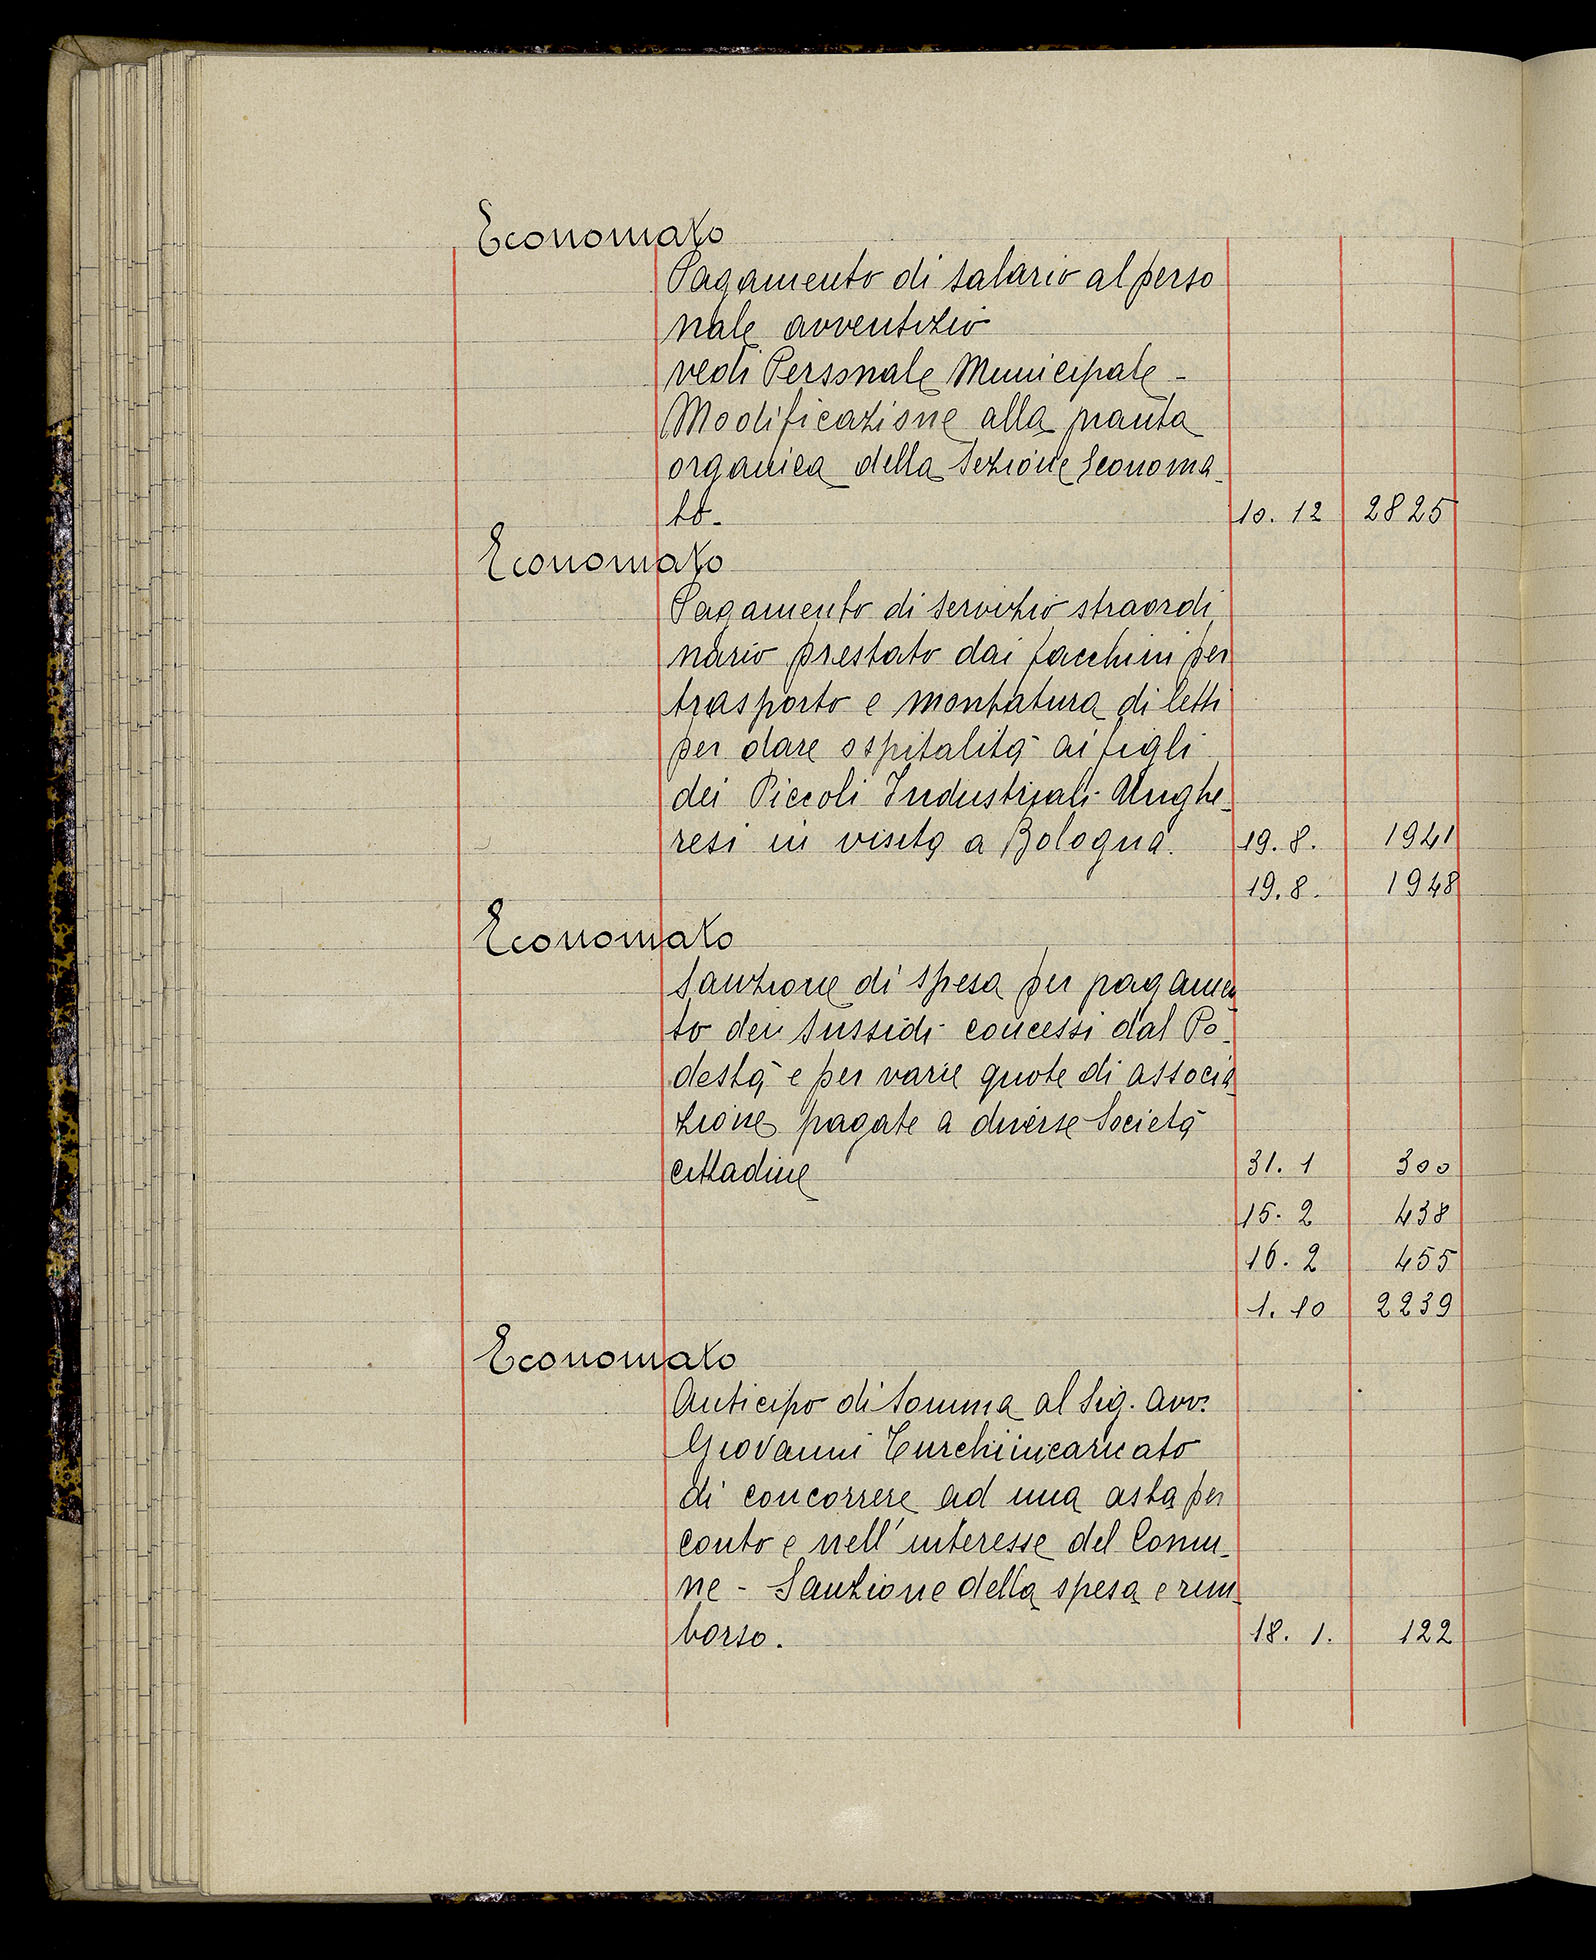 Economato
Pagamento di salario al perso
nale avventizio
vedi Personale Municipale -
Modificazione alla pianta
organica della Sezione Economa-
to.
10. 12 2825
Economato
Pagamento di servizio straordi
nario prestato dai facchini per
trasporto e montatura di letti
per dare ospitalità ai figli
dei Piccoli Industriali Unghe-
resi in visita a Bologna. 19. 8. 1941
19. 8. 1948
Economato
Sanzione di spesa per pagamen
to dei sussidi concessi dal Po-
destà e per varie quote di associa
zione pagate a diverse Società
cittadine 31. 1 300
15. 2 438
16. 2 455
1. 10 2239
Economato
Anticipo di somma al Sig. Avv.
Giovanni Turchi incaricato
di concorrere ad una asta per
conto e nell'interesse del Comu-
ne - Sanzione della spesa e rim-
borso. 18. 1. 122